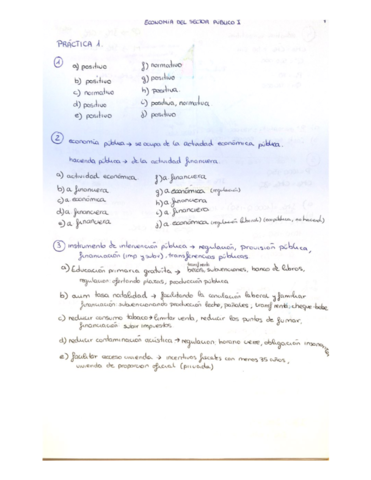 ECONOMIA DEL SECTOR PUBLICO I
1
PRÁCTICA 1.
① a) positivo f) normativo
b) positivo g) positivo
c) normativo h) positiva
d) positivo i) positiva, normativa
e) positivo j) positivo
② economía pública → se ocupa de la actividad económica pública.
hacienda pública → de la actividad financiera.
a) actividad económica f) a financiera
b) a financiera g) a económica (regulación)
c) a económica h) a financiera
d) a financiera i) a financiera
e) a financiera j) a económica (regulación laboral)
③ instrumento de intervención pública → regulación, provisión pública,
financiación (imp y subv). transferencias públicas.
a) Educación primaria gratuita → becas, subvenciones, banco de libros,
regulación ofertando plazas, producción pública
b) aum tasa natalidad → facilitando la conciliación laboral y familiar
financiación subvencionando producción leche, pañales, transf renti: cheque bebe
c) reducir consumo tabaco → limitar venta, reducir los puntos de fumar,
financiación subir impuestos
d) reducir contaminación acústica → regulacion, horario cierre, obligación
e) facilitar acceso vivienda → incentivos fiscales con menos 35 años,
vivienda de proporcion oficial (privada)